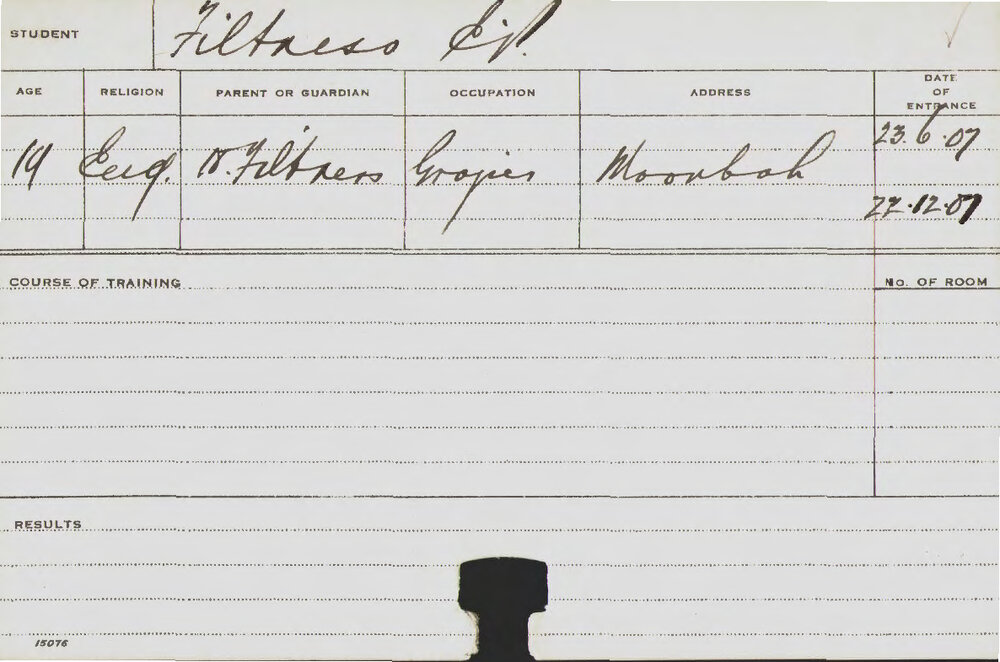 STUDENT Filtness E.J.
AGE RELIGION PARENT OR GUARDIAN OCCUPATION ADDRESS DATE OF ENTRANCE
19 Eng. W. Filtness Grazier Moonbah 23.6.07
22.12.07
COURSE OF TRAINING No. OF ROOM
RESULTS
15076